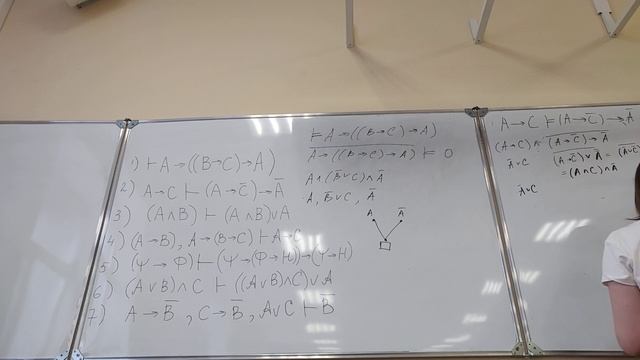 1) ⊢ A→((B→C)→A)
2) A→C ⊢ (A→C̅)→A̅
3) (A∧B) ⊢ (A∧B)∨A
4) (A→B), A→(B→C) ⊢ A→C
5) (Ψ→Φ) ⊢ (Ψ→(Φ→H))→(Ψ→H)
6) (A∨B)∧C ⊢ ((A∨B)∧C)∨A
7) A→B̅, C→B̅, A∨C ⊢ B̅
⊨ A→((B→C)→A)
A→((B→C)→A) ⊨ 0
A∧(B̅∨C)∧A̅
A, B̅∨C, A̅
A A̅
□
A→C ⊨ (A→C̅)→A̅
(A→C)∧
A̅∨C
A̅∨C